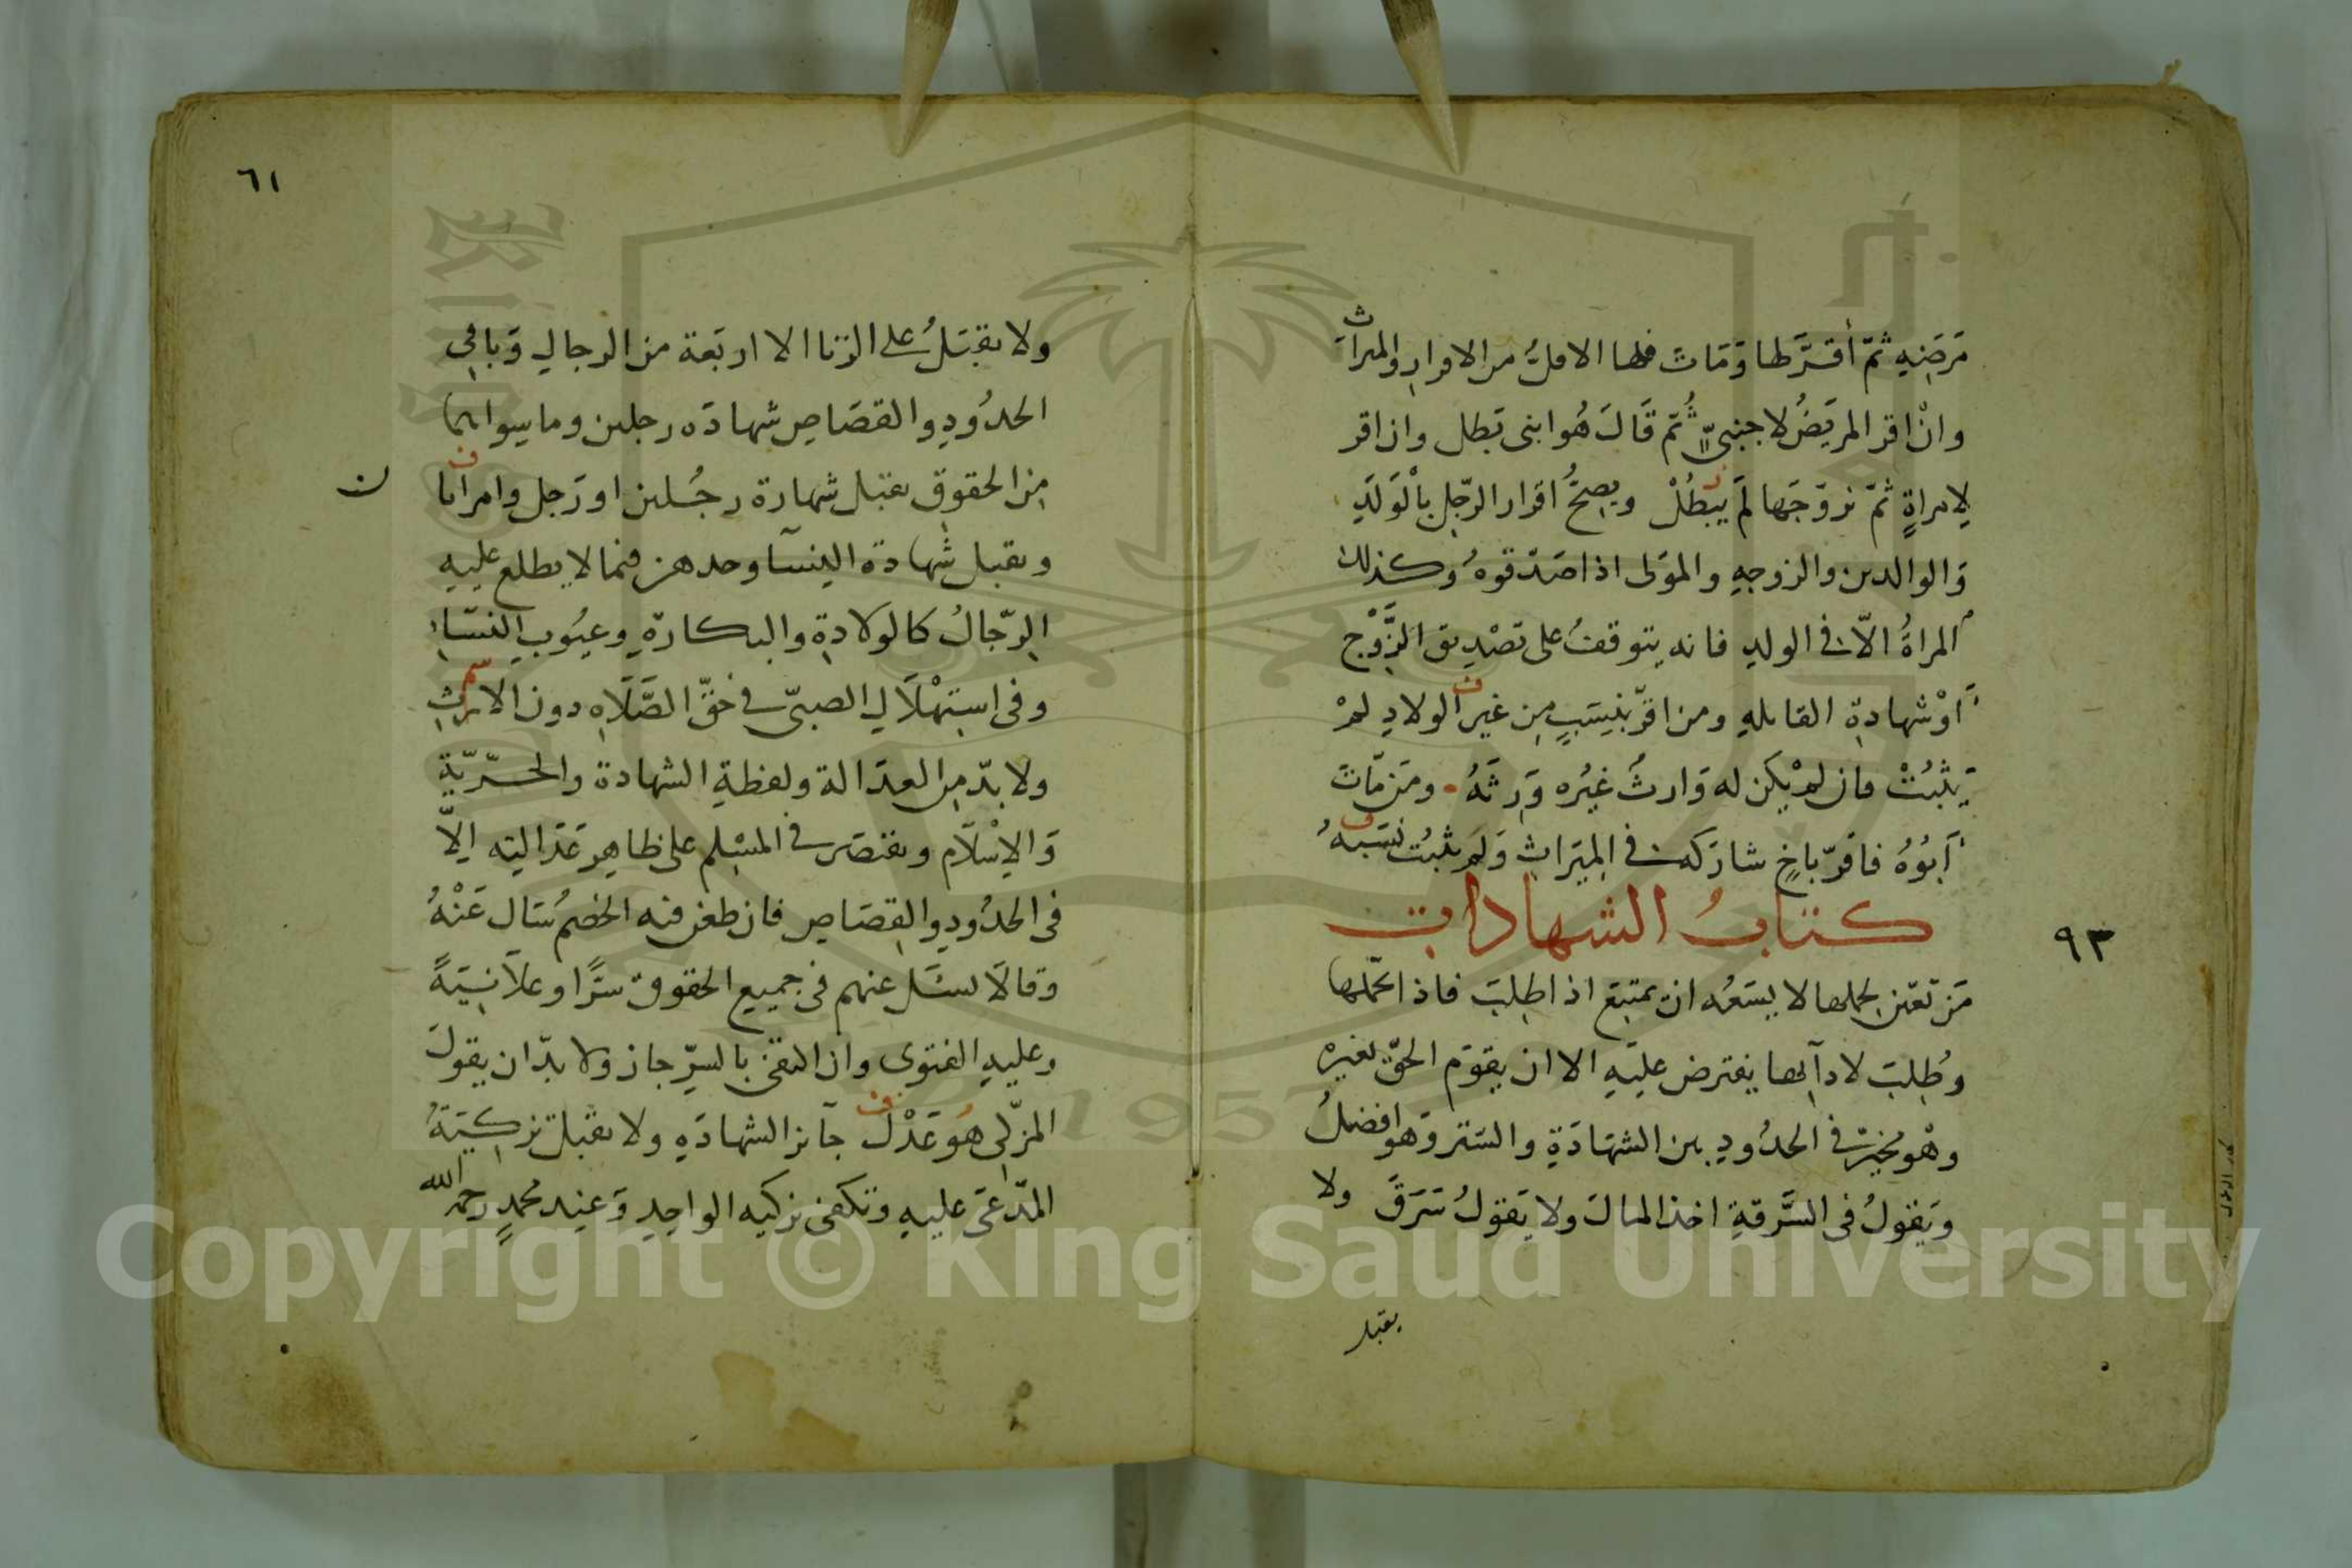 مَرَضِهِ ثمّ أقرَّ لها وَمَاتَ فلها الاقلُّ من الاقرارِ والميراث
وانْ اقر المريَضُ لاجنبىّ ثُمّ قَالَ هُوا بنى بَطل وان اقر
لامراةٍ ثمّ تزوّجَها لَمْ يبْطُلْ ويصِحُّ اقرار الرّجلِ بالْوَلَدِ
وَالوالدين والزوجهِ والموَلى اذا صَدّقوهُ وكذلك
المراةُ الّا فى الولدِ فانه يتوقفُ على تصْدِيق الزَّوْج
اَوْ شهادةِ القابلهِ ومن اقرّ بنسَبٍ مِن غير الولادِ لمْ
يَثْبُتْ فان لمْ يكَن له وَارثٌ غيُره وَرِثَهُ ومَن مّاتَ
اَبُوُهُ فاقرّ باخٍ شارَكه فى الميَراثِ وَلمْ يثبُت نسَبهُ
كتابُ الشهادات
٩٣
مَن تعيّن لحملها لا يسَعُه ان يمتنِعَ اذا طِلبَ فاذا تحّملها
وطُلِبَ لادآئها يفترض عليَهِ الا ان يقوَم الحقّ بغيره
وهْو مخيرٌ فى الحدُودِ بين الشهَادَةِ والستر وَهو افضلُ
وَيقولُ فى السَّرقةِ اخذ المالَ ولا يَقولُ سَرَقَ ولا
يقبل
٦١
ولا يقبَلُ على الزنا الا اربَعة من الرجالِ وَباقِى
الحدُودِ والقصَاصِ شهادَه رجلين وما سِواهما
مِن الحقوقِ يقبل شهادة رجُلين او رَجل وامراتا
ن
ويقبل شهادة النسآ وحدهن فيما لا يطلع عليهِ
الرّجالُ كالولادةِ والبكارةِ وعيُوبِ النسّاءِ
وفى استِهْلَالِ الصبىّ فى حَقّ الصَّلَاهِ دون الارثِ
ولا بدّ مِن العدَالة ولفظةِ الشهادة والحرّيّةِ
وَالاِسْلَامِ ويقتصَر فى المسْلِم على ظاهِر عَدَالتِه اِلّا
فى الحدُودِ والقِصَاصِ فان طعن فيه الخصمُ سَال عَنْهُ
وقالَا يسَئل عنهم فى جميع الحقوق سرًّا وعلاَنيَةً
وعليهِ الفتوى وان اكتفى بالسرِّ جاز وَلا بدّ ان يقولَ
المزكّى هُو عَدْلٌ جآئز الشهادَهِ ولا يقبل تزكِيَةُ
المدّعَى عليهِ وتكفى تزكيه الواحِدِ وَعِند محمدٍ رحمه الله
Copyright © King Saud University
1957